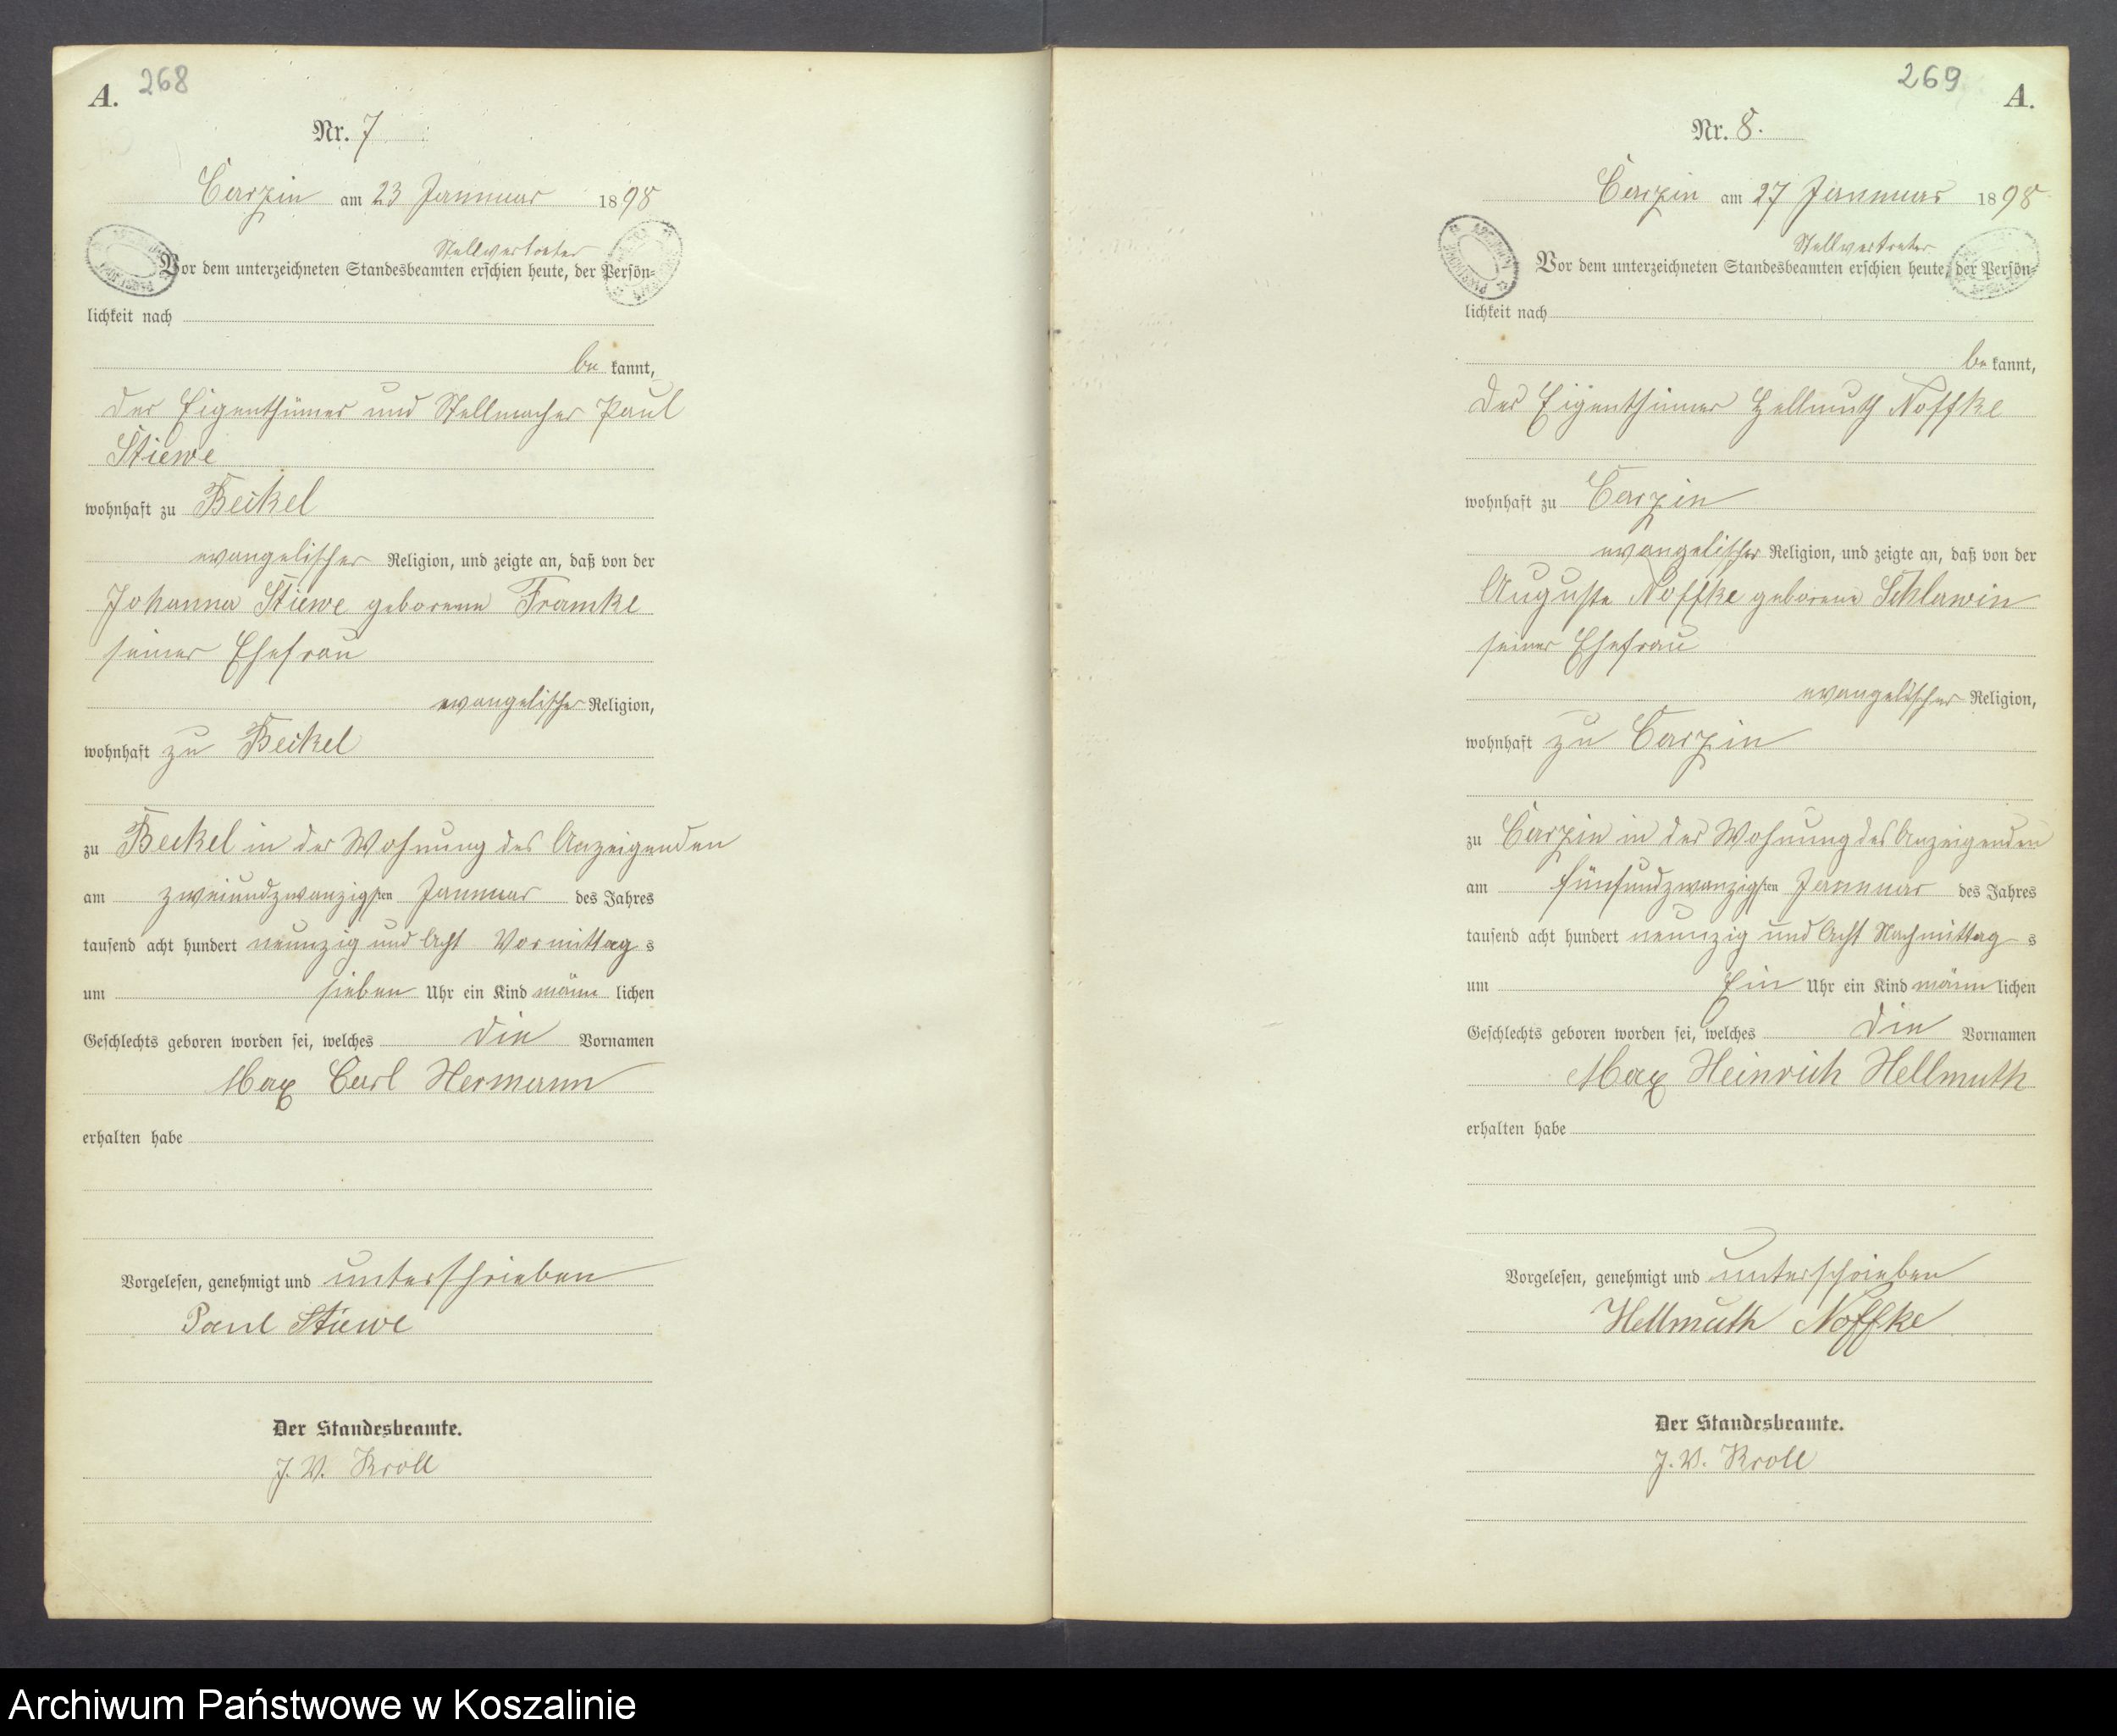 A. 268
Nr. 7
Carzin am 23 Januar 1898
Stellvertreter
Vor dem unterzeichneten Standesbeamten erschien heute, der Persön=
lichkeit nach
be kannt,
der Eigenthümer und Stellmacher Paul
Stiewe
wohnhaft zu Beckel
evangelischer Religion, und zeigte an, daß von der
Johanna Stiewe geborene Framke
seiner Ehefrau
evangelischer Religion,
wohnhaft zu Beckel
zu Beckel in der Wohnung des Anzeigenden
am zweiundzwanzigsten Januar des Jahres
tausend acht hundert neunzig und Acht Vormittag s
um sieben Uhr ein Kind männ lichen
Geschlechts geboren worden sei, welches die Vornamen
Max Carl Hermann
erhalten habe
Vorgelesen, genehmigt und unterschrieben
Paul Stiewe
Der Standesbeamte.
J. V. Kroll
269 A.
Nr. 8.
Carzin am 27 Januar 1898
Stellvertreter
Vor dem unterzeichneten Standesbeamten erschien heute, der Persön=
lichkeit nach
be kannt,
der Eigenthümer Hellmuth Noffke
wohnhaft zu Carzin
evangelischer Religion, und zeigte an, daß von der
Auguste Noffke geborene Schlawin
seiner Ehefrau
evangelischer Religion,
wohnhaft zu Carzin
zu Carzin in der Wohnung des Anzeigenden
am fünfundzwanzigsten Januar des Jahres
tausend acht hundert neunzig und Acht Nachmittag s
um Ein Uhr ein Kind männ lichen
Geschlechts geboren worden sei, welches die Vornamen
Max Heinrich Hellmuth
erhalten habe
Vorgelesen, genehmigt und unterschrieben
Hellmuth Noffke
Der Standesbeamte.
J. V. Kroll
Archiwum Państwowe w Koszalinie